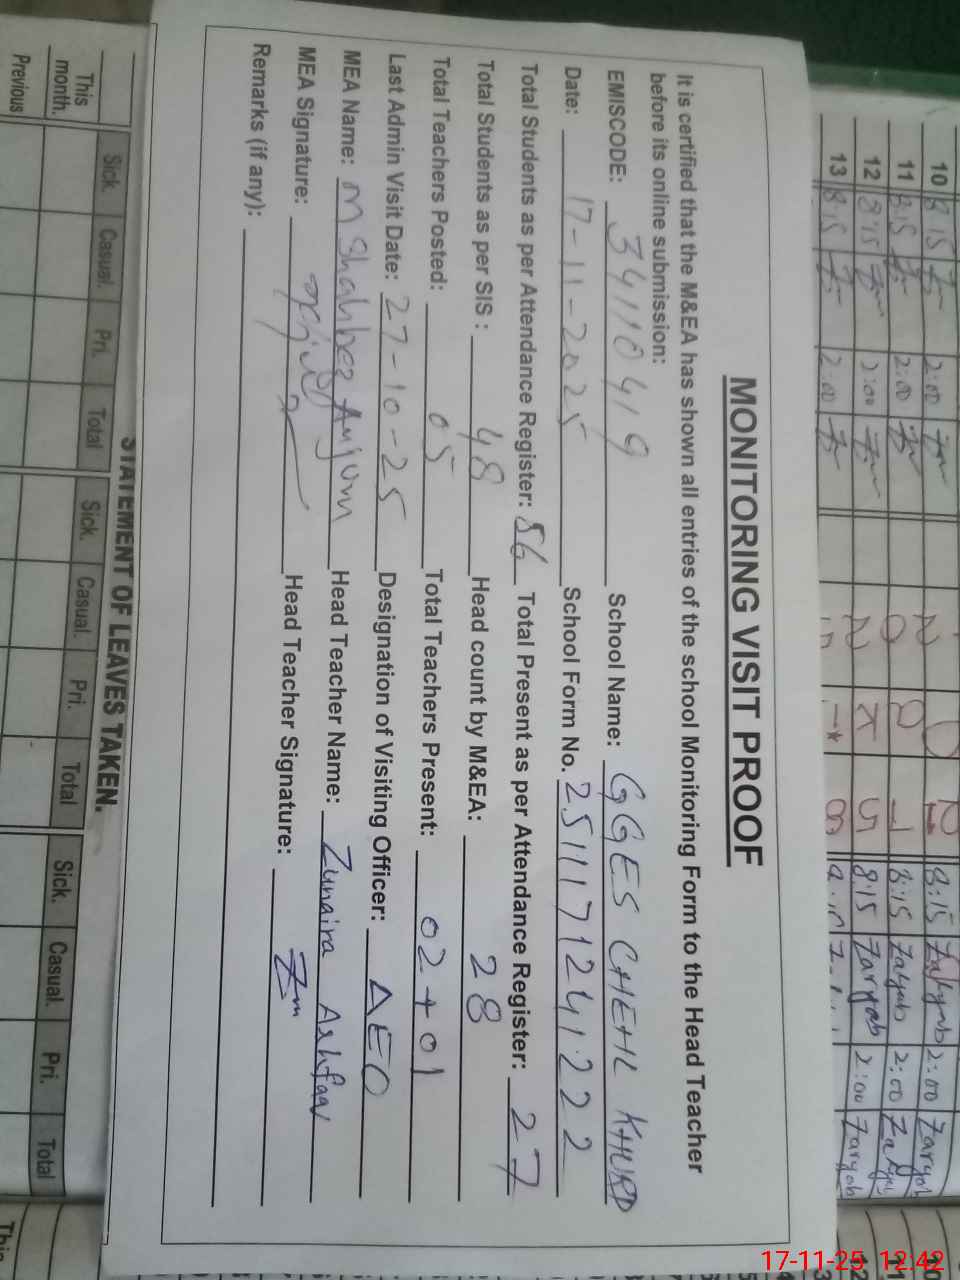 MONITORING VISIT PROOF
It is certified that the M&EA has shown all entries of the school Monitoring Form to the Head Teacher
before its online submission:
EMISCODE: 34110419 School Name: GGES CHEHL KHURD
Date: 17-11-2025 School Form No. 2511171241222
Total Students as per Attendance Register: 56 Total Present as per Attendance Register: 27
Total Students as per SIS : 48 Head count by M&EA: 28
Total Teachers Posted: 05 Total Teachers Present: 02+01
Last Admin Visit Date: 27-10-25 Designation of Visiting Officer: AEO
MEA Name: M Shahbaz Anjum Head Teacher Name: Zunaira Ashfaq
MEA Signature: Head Teacher Signature:
Remarks (if any):
10 8:15 2:00 8:15 2:00
11 8:15 2:00 8:15 2:00
12 8:15 2:00 8:15 Zaryab 2:00 Zaryab
13 8:15 2:00
STATEMENT OF LEAVES TAKEN.
Sick. Casual. Pri. Total Sick. Casual. Pri. Total Sick. Casual. Pri. Total
This
month.
Previous
This
17-11-25 12:42